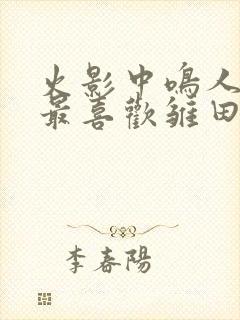 火影中鳴人
最喜歡雏田
李春陽